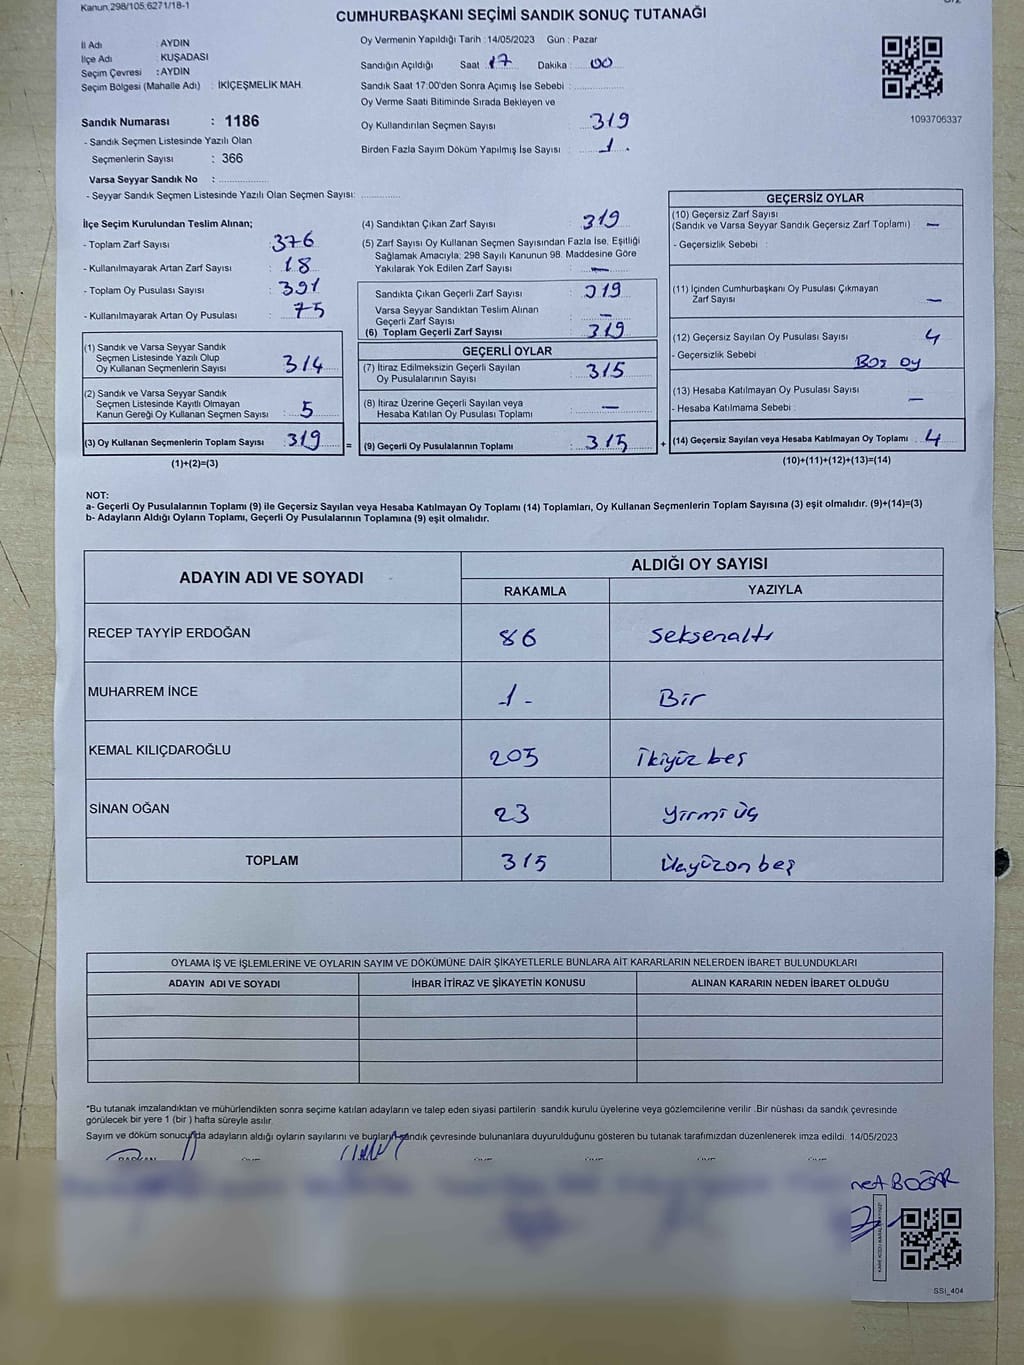 Kanun,298/105,6271/18-1
CUMHURBAŞKANI SEÇİMİ SANDIK SONUÇ TUTANAĞI
İl Adı : AYDIN
İlçe Adı : KUŞADASI
Seçim Çevresi : AYDIN
Seçim Bölgesi (Mahalle Adı) : İKİÇEŞMELİK MAH.
Sandık Numarası : 1186
- Sandık Seçmen Listesinde Yazılı Olan
Seçmenlerin Sayısı : 366
Varsa Seyyar Sandık No :
- Seyyar Sandık Seçmen Listesinde Yazılı Olan Seçmen Sayısı:
Oy Vermenin Yapıldığı Tarih :14/05/2023 Gün : Pazar
Sandığın Açıldığı Saat : 17 Dakika : 00
Sandık Saat 17:00'den Sonra Açımış İse Sebebi :
Oy Verme Saati Bitiminde Sırada Bekleyen ve
Oy Kullandırılan Seçmen Sayısı : 319
Birden Fazla Sayım Döküm Yapılmış İse Sayısı : 1.
1093706337
İlçe Seçim Kurulundan Teslim Alınan;
- Toplam Zarf Sayısı : 376
- Kullanılmayarak Artan Zarf Sayısı : 18
- Toplam Oy Pusulası Sayısı : 391
- Kullanılmayarak Artan Oy Pusulası : 75
(1) Sandık ve Varsa Seyyar Sandık
Seçmen Listesinde Yazılı Olup
Oy Kullanan Seçmenlerin Sayısı : 314
(2) Sandık ve Varsa Seyyar Sandık
Seçmen Listesinde Kayıtlı Olmayan
Kanun Gereği Oy Kullanan Seçmen Sayısı : 5
(3) Oy Kullanan Seçmenlerin Toplam Sayısı : 319 =
(1)+(2)=(3)
(4) Sandıktan Çıkan Zarf Sayısı : 319
(5) Zarf Sayısı Oy Kullanan Seçmen Sayısından Fazla İse, Eşitliği
Sağlamak Amacıyla; 298 Sayılı Kanunun 98. Maddesine Göre
Yakılarak Yok Edilen Zarf Sayısı : —
Sandıkta Çıkan Geçerli Zarf Sayısı : 319
Varsa Seyyar Sandıktan Teslim Alınan
Geçerli Zarf Sayısı : —
(6) Toplam Geçerli Zarf Sayısı : 319
GEÇERLİ OYLAR
(7) İtiraz Edilmeksizin Geçerli Sayılan
Oy Pusulalarının Sayısı : 315
(8) İtiraz Üzerine Geçerli Sayılan veya
Hesaba Katılan Oy Pusulası Toplamı : —
(9) Geçerli Oy Pusulalarının Toplamı : 315 +
GEÇERSİZ OYLAR
(10) Geçersiz Zarf Sayısı
(Sandık ve Varsa Seyyar Sandık Geçersiz Zarf Toplamı) : —
- Geçersizlik Sebebi :
(11) İçinden Cumhurbaşkanı Oy Pusulası Çıkmayan
Zarf Sayısı —
(12) Geçersiz Sayılan Oy Pusulası Sayısı 4
- Geçersizlik Sebebi Boş oy
(13) Hesaba Katılmayan Oy Pusulası Sayısı —
- Hesaba Katılmama Sebebi :
(14) Geçersiz Sayılan veya Hesaba Katılmayan Oy Toplamı : 4
(10)+(11)+(12)+(13)=(14)
NOT:
a- Geçerli Oy Pusulalarının Toplamı (9) ile Geçersiz Sayılan veya Hesaba Katılmayan Oy Toplamı (14) Toplamları, Oy Kullanan Seçmenlerin Toplam Sayısına (3) eşit olmalıdır. (9)+(14)=(3)
b- Adayların Aldığı Oyların Toplamı, Geçerli Oy Pusulalarının Toplamına (9) eşit olmalıdır.
ADAYIN ADI VE SOYADI ALDIĞI OY SAYISI
RAKAMLA YAZIYLA
RECEP TAYYİP ERDOĞAN 86 Seksenaltı
MUHARREM İNCE 1 - Bir
KEMAL KILIÇDAROĞLU 205 İkiyüz beş
SİNAN OĞAN 23 Yirmi üç
TOPLAM 315 Üçyüzon beş
OYLAMA İŞ VE İŞLEMLERİNE VE OYLARIN SAYIM VE DÖKÜMÜNE DAİR ŞİKAYETLERLE BUNLARA AİT KARARLARIN NELERDEN İBARET BULUNDUKLARI
ADAYIN ADI VE SOYADI İHBAR İTİRAZ VE ŞİKAYETİN KONUSU ALINAN KARARIN NEDEN İBARET OLDUĞU
*Bu tutanak imzalandıktan ve mühürlendikten sonra seçime katılan adayların ve talep eden siyasi partilerin sandık kurulu üyelerine veya gözlemcilerine verilir .Bir nüshası da sandık çevresinde
görülecek bir yere 1 (bir ) hafta süreyle asılır.
Sayım ve döküm sonucunda adayların aldığı oyların sayılarını ve bunların sandık çevresinde bulunanlara duyurulduğunu gösteren bu tutanak tarafımızdan düzenlenerek imza edildi. 14/05/2023
BOĞAR
SSI_404